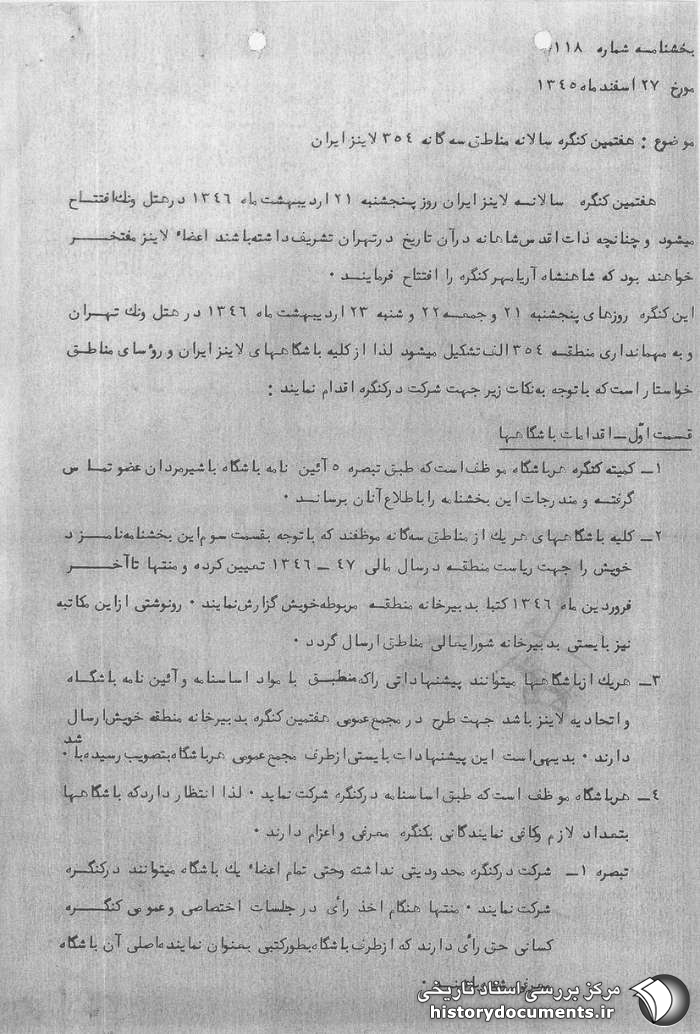 بخشنامه شماره ۱۱۸/
مورخ ۲۷ اسفندماه ۱۳۴۵
موضوع : هفتمین کنگره سالانه مناطق سه گانه ۳۵۴ لاینز ایران
هفتمین کنگره سالانه لاینز ایران روز پنجشنبه ۲۱ اردیبهشت ماه ۱۳۴۶ در هتل ونک افتتاح
میشود و چنانچه ذات اقدس شاهانه در آن تاریخ در تهران تشریف داشته باشند اعضاء لاینز مفتخر
خواهند بود که شاهنشاه آریامهر کنگره را افتتاح فرمایند .
این کنگره روزهای پنجشنبه ۲۱ و جمعه ۲۲ و شنبه ۲۳ اردیبهشت ماه ۱۳۴۶ در هتل ونک تهران
و به مهمانداری منطقه ۳۵۴ الف تشکیل میشود لذا از کلیه باشگاههای لاینز ایران و رؤسای مناطق
خواستار است که با توجه به نکات زیر جهت شرکت در کنگره اقدام نمایند :
قسمت اوّل ـ اقدامات باشگاهها
۱ـ کمیته کنگره هر باشگاه موظف است که طبق تبصره ۵ آئین نامه باشگاه با شیرمردان عضو تماس
گرفته و مندرجات این بخشنامه را باطلاع آنان برساند .
۲ـ کلیه باشگاههای هر یک از مناطق سه گانه موظفند که با توجه بقسمت سوم این بخشنامه نامزد
خویش را جهت ریاست منطقه در سال مالی ۴۷ ـ ۱۳۴۶ تعیین کرده و منتها تا آخر
فروردین ماه ۱۳۴۶ کتبا بدبیرخانه منطقه مربوطه خویش گزارش نمایند . رونوشتی از این مکاتبه
نیز بایستی بدبیرخانه شورایعالی مناطق ارسال گردد .
۳ـ هریک از باشگاهها میتوانند پیشنهاداتی را که منطبق با مواد اساسنامه و آئین نامه باشگاه
و اتحادیه لاینز باشد جهت طرح در مجمع عمومی هفتمین کنگره بدبیرخانه منطقه خویش ارسال
دارند . بدیهی است این پیشنهادات بایستی از طرف مجمع عمومی هر باشگاه بتصویب رسیده باشد .
۴ـ هر باشگاه موظف است که طبق اساسنامه در کنگره شرکت نماید . لذا انتظار دارد که باشگاهها
بتعداد لازم و کافی نمایندگانی بکنگره معرفی و اعزام دارند .
تبصره ۱ـ شرکت در کنگره محدودیتی نداشته و حتی تمام اعضاء یک باشگاه میتوانند در کنگره
شرکت نمایند . منتها هنگام اخذ رأی در جلسات اختصاصی و عمومی کنگره
کسانی حق رأی دارند که از طرف باشگاه بطور کتبی بعنوان نماینده اصلی آن باشگاه
مرکز بررسی اسناد تاریخی
historydocuments.ir